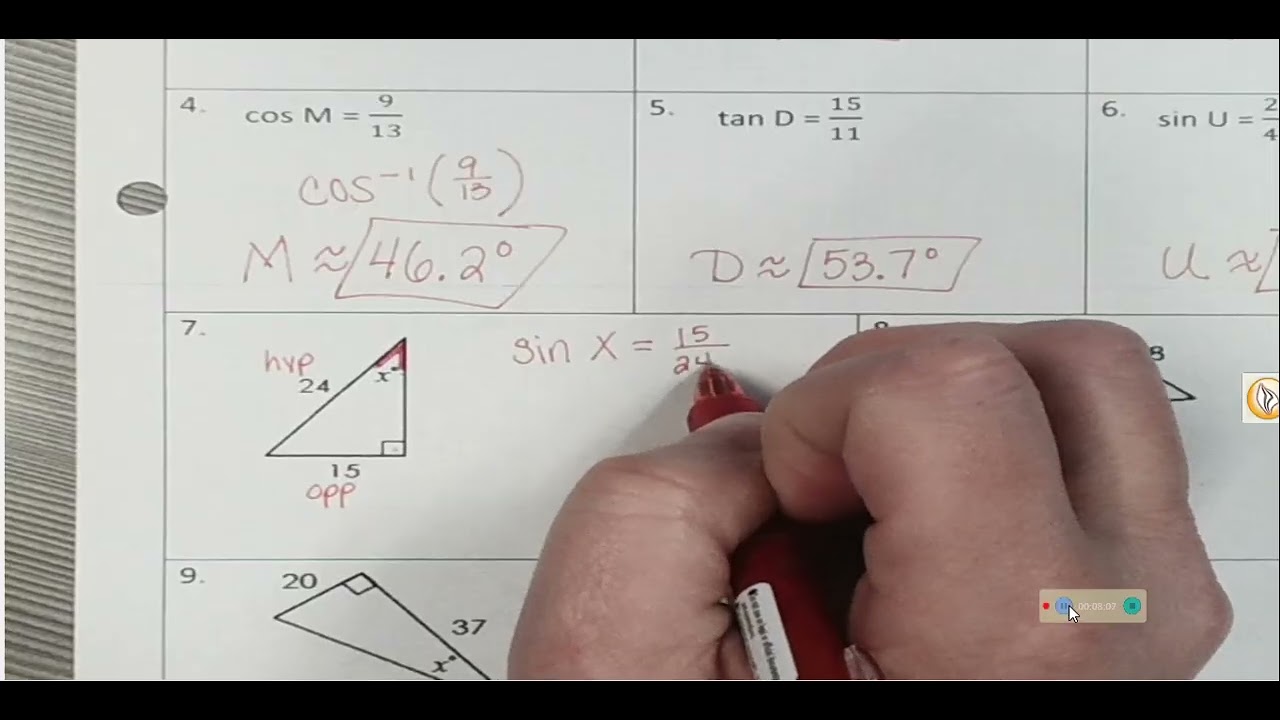 4. cos M = 9/13
cos⁻¹(9/13)
M ≈ 46.2°
5. tan D = 15/11
D ≈ 53.7°
6. sin U = 2/4
U ≈
7. hyp
24
x°
15
opp
sin x = 15/24
8
9. 20
37
x°
00:08:07